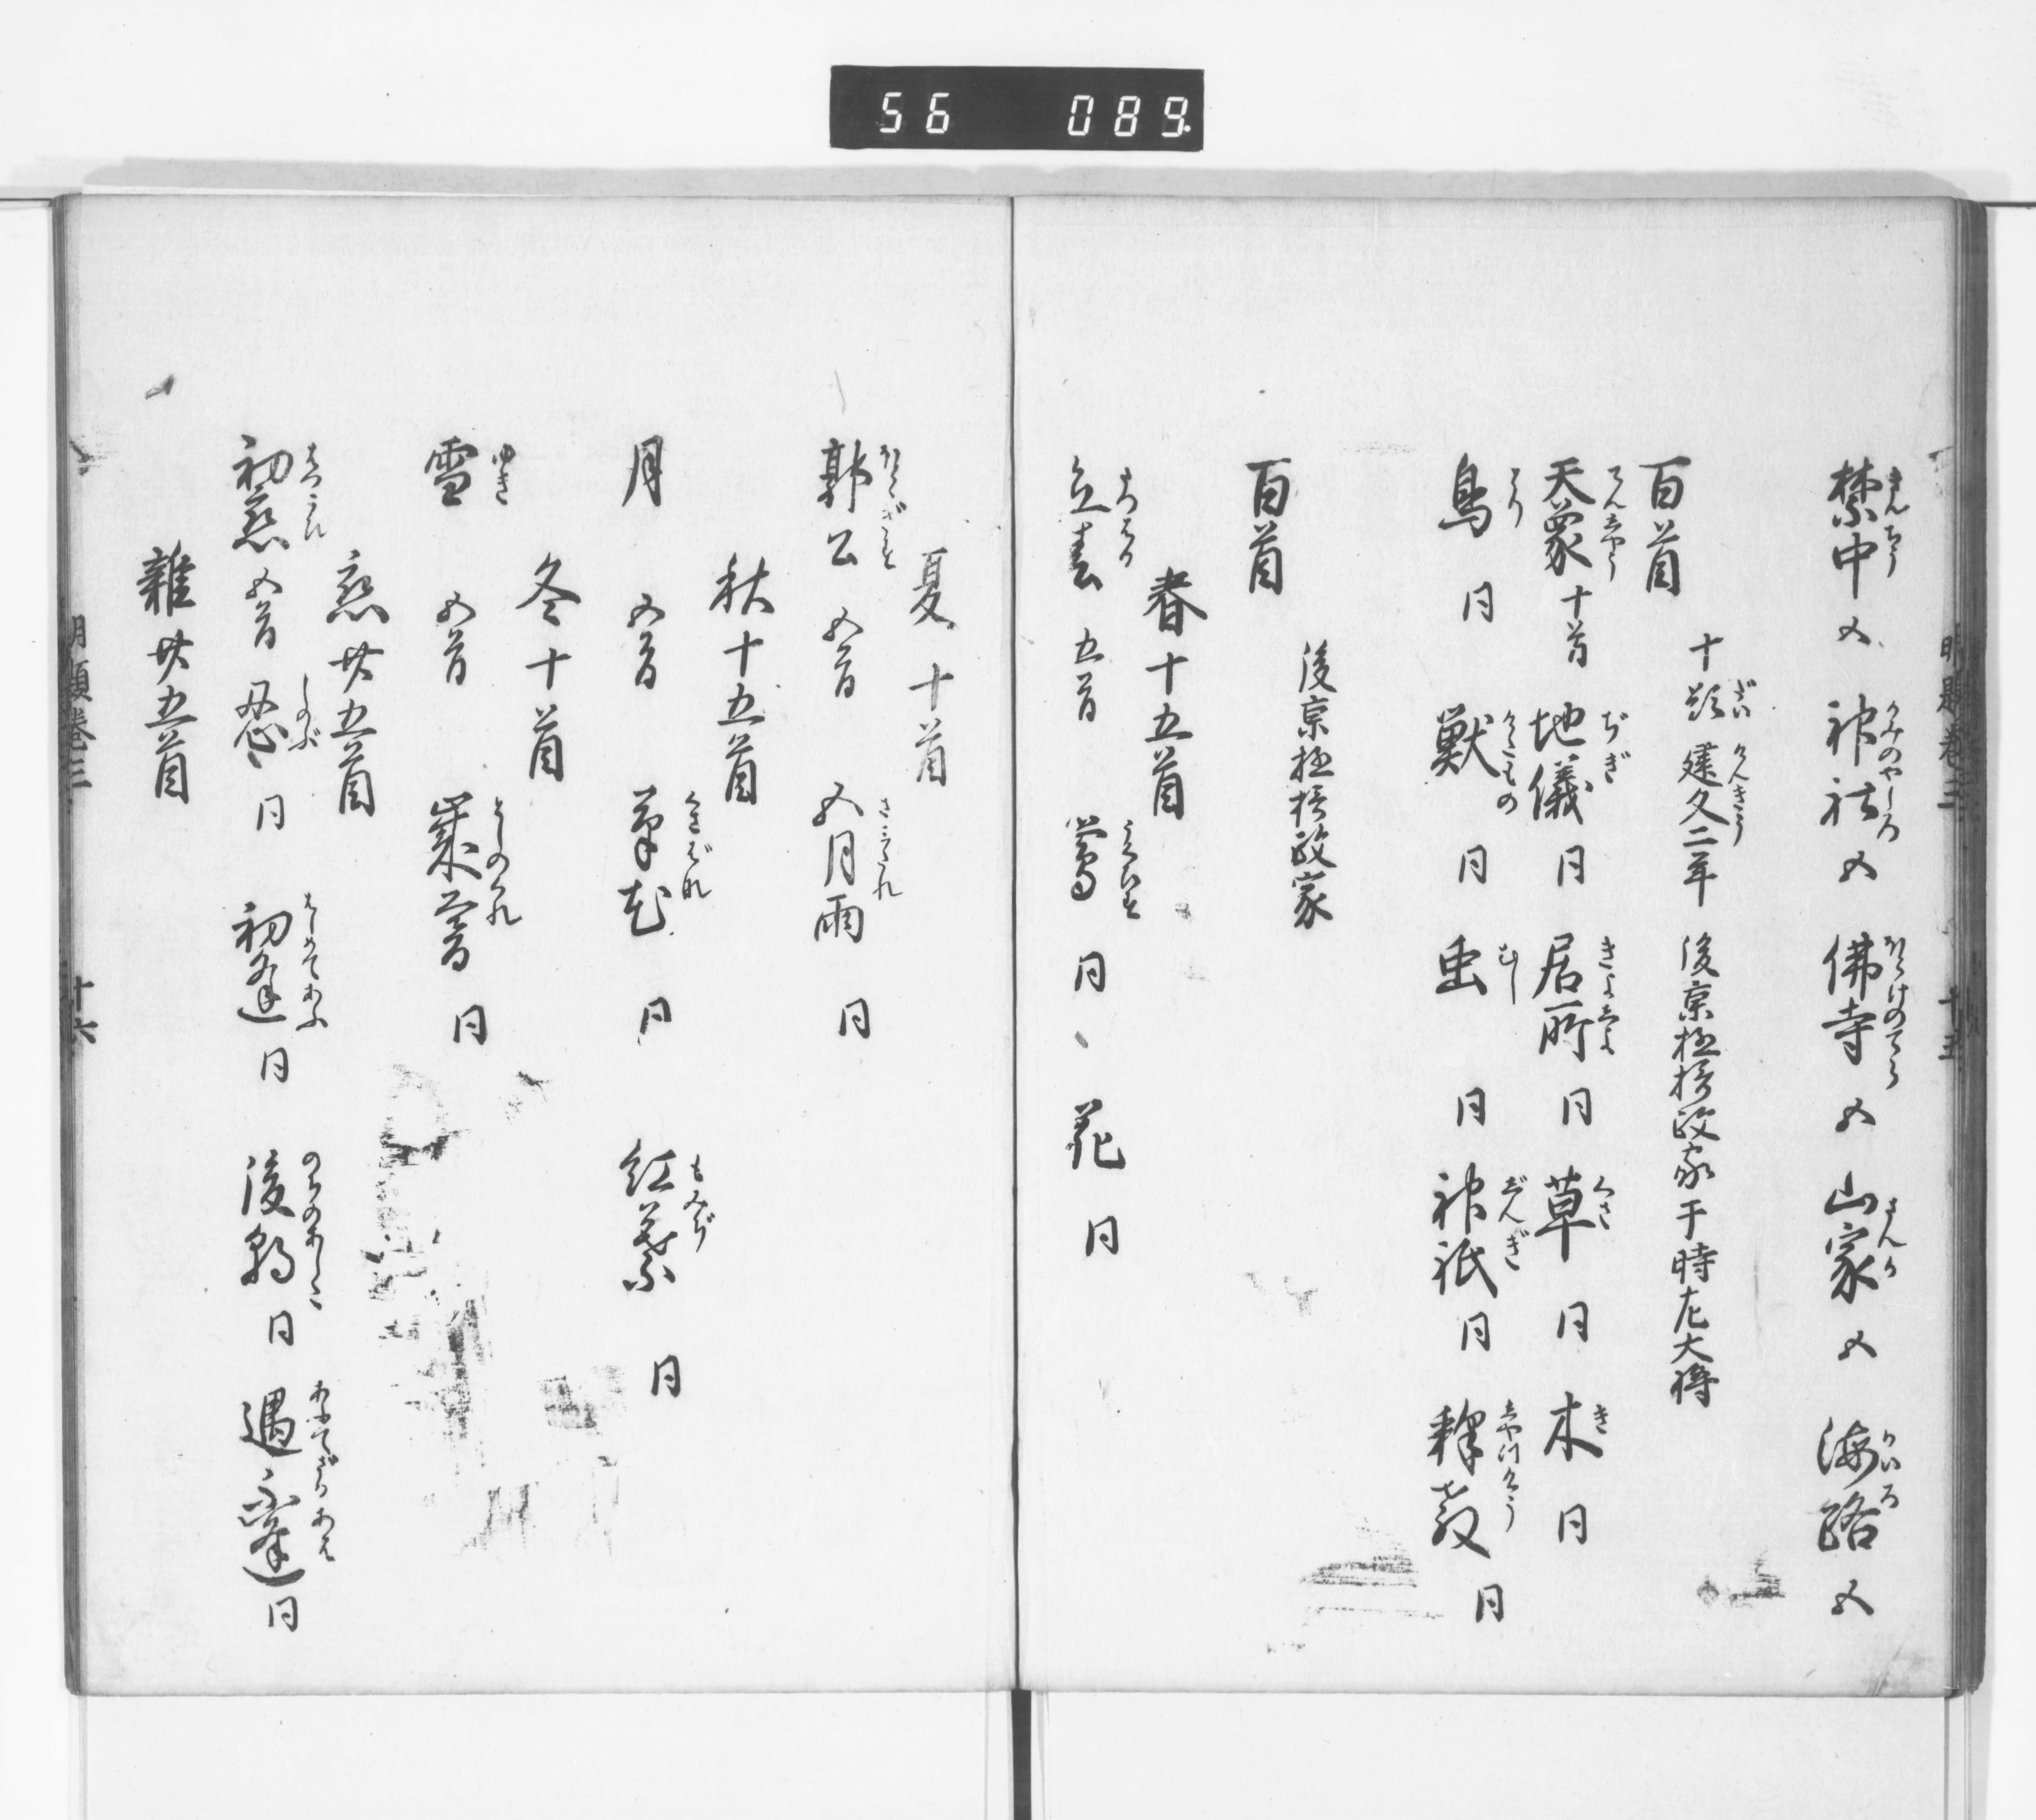 56 089
禁中五 神社五 佛寺五 山家五 海路五
百首
十題 建久二年 後京極摂政家于時左大将
天象十首 地儀同 居所同 草同 木同
鳥同 獣同 虫同 神祇同 釋教同
百首
後京極摂政家
春十五首
立春五首 鶯同 花同
夏十首
郭公五首 五月雨同
秋十五首
月五首 草花同 紅葉同
冬十首
雪五首 歳暮同
恋廿五首
初恋五首 忍同 初逢同 後朝同 遇不逢同
雑廿五首
明題巻三 十六